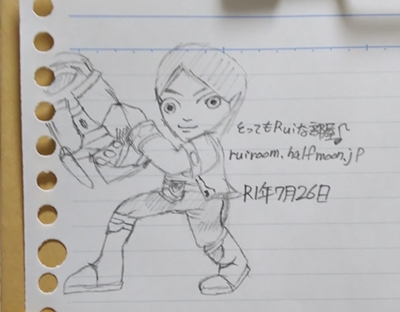 とってもRuiな部屋♪
ruiroom.halfmoon.jp
R1年7月26日